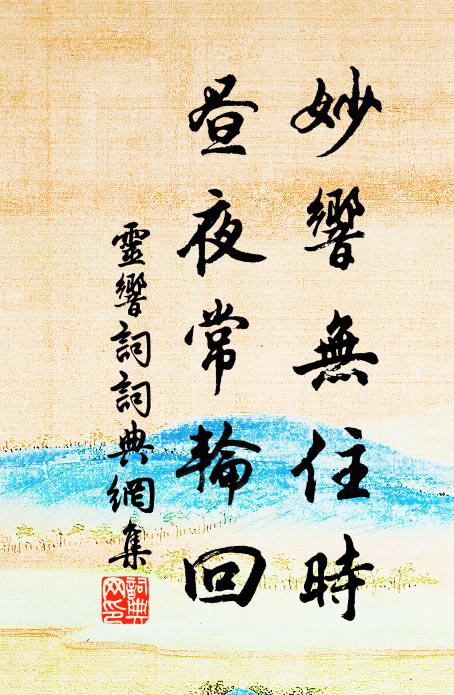 妙響無住時
晝夜常輪回
靈響詞詞典網集
詞典網印